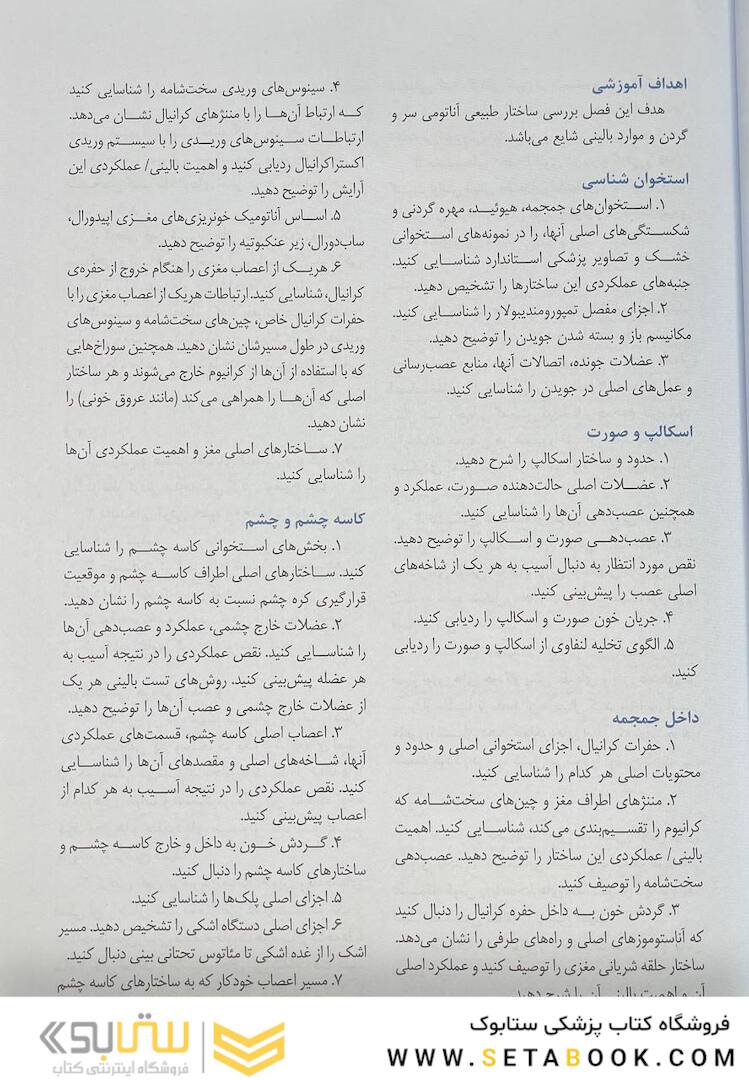 اهداف آموزشی
هدف این فصل بررسی ساختار طبیعی آناتومی سر و
گردن و موارد بالینی شایع می‌باشد.
استخوان شناسی
۱. استخوان‌های جمجمه، هیوئید، مهره گردنی و
شکستگی‌های اصلی آنها، را در نمونه‌های استخوانی
خشک و تصاویر پزشکی استاندارد شناسایی کنید.
جنبه‌های عملکردی این ساختارها را تشخیص دهید.
۲. اجزای مفصل تمپورومندیبولار را شناسایی کنید.
مکانیسم باز و بسته شدن جویدن را توضیح دهید.
۳. عضلات جونده، اتصالات آنها، منابع عصب‌رسانی
و عمل‌های اصلی در جویدن را شناسایی کنید.
اسکالپ و صورت
۱. حدود و ساختار اسکالپ را شرح دهید.
۲. عضلات اصلی حالت‌دهنده صورت، عملکرد و
همچنین عصب‌دهی آن‌ها را شناسایی کنید.
۳. عصب‌دهی صورت و اسکالپ را توضیح دهید.
نقص مورد انتظار به دنبال آسیب به هر یک از شاخه‌های
اصلی عصب را پیش‌بینی کنید.
۴. جریان خون صورت و اسکالپ را ردیابی کنید.
۵. الگوی تخلیه لنفاوی از اسکالپ و صورت را ردیابی
کنید.
داخل جمجمه
۱. حفرات کرانیال، اجزای استخوانی اصلی و حدود و
محتویات اصلی هر کدام را شناسایی کنید.
۲. مننژهای اطراف مغز و چین‌های سخت‌شامه که
کرانیوم را تقسیم‌بندی می‌کند، شناسایی کنید. اهمیت
بالینی/ عملکردی این ساختار را توضیح دهید. عصب‌دهی
سخت‌شامه را توصیف کنید.
۳. گردش خون به داخل حفره کرانیال را دنبال کنید
که آناستوموزهای اصلی و راه‌های طرفی را نشان می‌دهد.
ساختار حلقه شریانی مغزی را توصیف کنید و عملکرد اصلی
آن و اهمیت بالینی آن را شرح دهید.
۴. سینوس‌های وریدی سخت‌شامه را شناسایی کنید
که ارتباط آن‌ها را با مننژهای کرانیال نشان می‌دهد.
ارتباطات سینوس‌های وریدی را با سیستم وریدی
اکستراکرانیال ردیابی کنید و اهمیت بالینی/ عملکردی این
آرایش را توضیح دهید.
۵. اساس آناتومیک خونریزی‌های مغزی اپیدورال،
ساب‌دورال، زیر عنکبوتیه را توضیح دهید.
۶. هریک از اعصاب مغزی را هنگام خروج از حفره‌ی
کرانیال، شناسایی کنید. ارتباطات هریک از اعصاب مغزی را با
حفرات کرانیال خاص، چین‌های سخت‌شامه و سینوس‌های
وریدی در طول مسیرشان نشان دهید. همچنین سوراخ‌هایی
که با استفاده از آن‌ها از کرانیوم خارج می‌شوند و هر ساختار
اصلی که آن‌ها را همراهی می‌کند (مانند عروق خونی) را
نشان دهید.
۷. ساختارهای اصلی مغز و اهمیت عملکردی آن‌ها
را شناسایی کنید.
کاسه چشم و چشم
۱. بخش‌های استخوانی کاسه چشم را شناسایی
کنید. ساختارهای اصلی اطراف کاسه چشم و موقعیت
قرارگیری کره چشم نسبت به کاسه چشم را نشان دهید.
۲. عضلات خارج چشمی، عملکرد و عصب‌دهی آن‌ها
را شناسایی کنید. نقص عملکردی را در نتیجه آسیب به
هر عضله پیش‌بینی کنید. روش‌های تست بالینی هر یک
از عضلات خارج چشمی و عصب آن‌ها را توضیح دهید.
۳. اعصاب اصلی کاسه چشم، قسمت‌های عملکردی
آنها، شاخه‌های اصلی و مقصدهای آن‌ها را شناسایی
کنید. نقص عملکردی را در نتیجه آسیب به هر کدام از
اعصاب پیش‌بینی کنید.
۴. گردش خون به داخل و خارج کاسه چشم و
ساختارهای کاسه چشم را دنبال کنید.
۵. اجزای اصلی پلک‌ها را شناسایی کنید.
۶. اجزای اصلی دستگاه اشکی را تشخیص دهید. مسیر
اشک را از غده اشکی تا مئاتوس تحتانی بینی دنبال کنید.
۷. مسیر اعصاب خودکار که به ساختارهای کاسه چشم
فروشگاه کتاب پزشکی ستابوک
WWW.SETABOOK.COM
ستابوک
فروشگاه اینترنتی کتاب